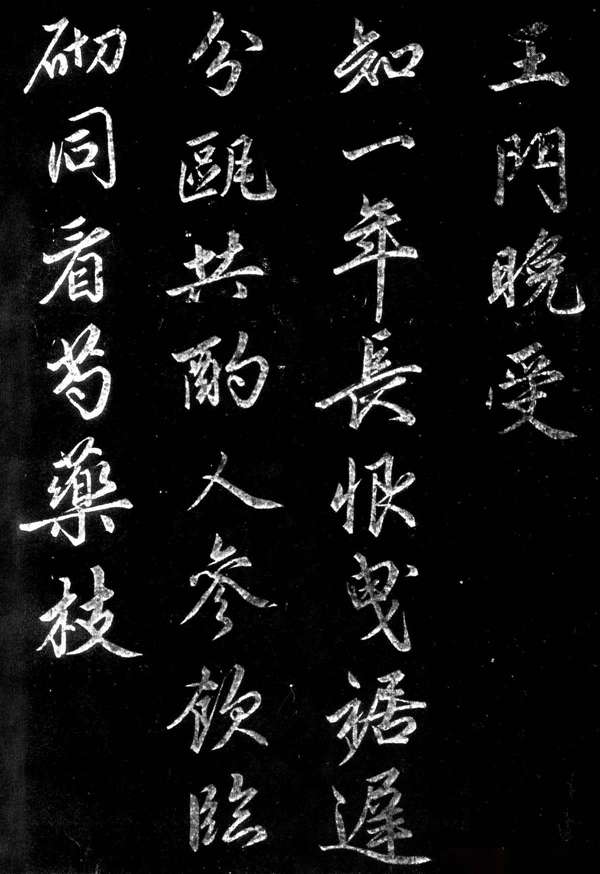 王門晚受
知一年長恨曳裾遲
分甌共酌人參飲臨
砌同看芍藥枝